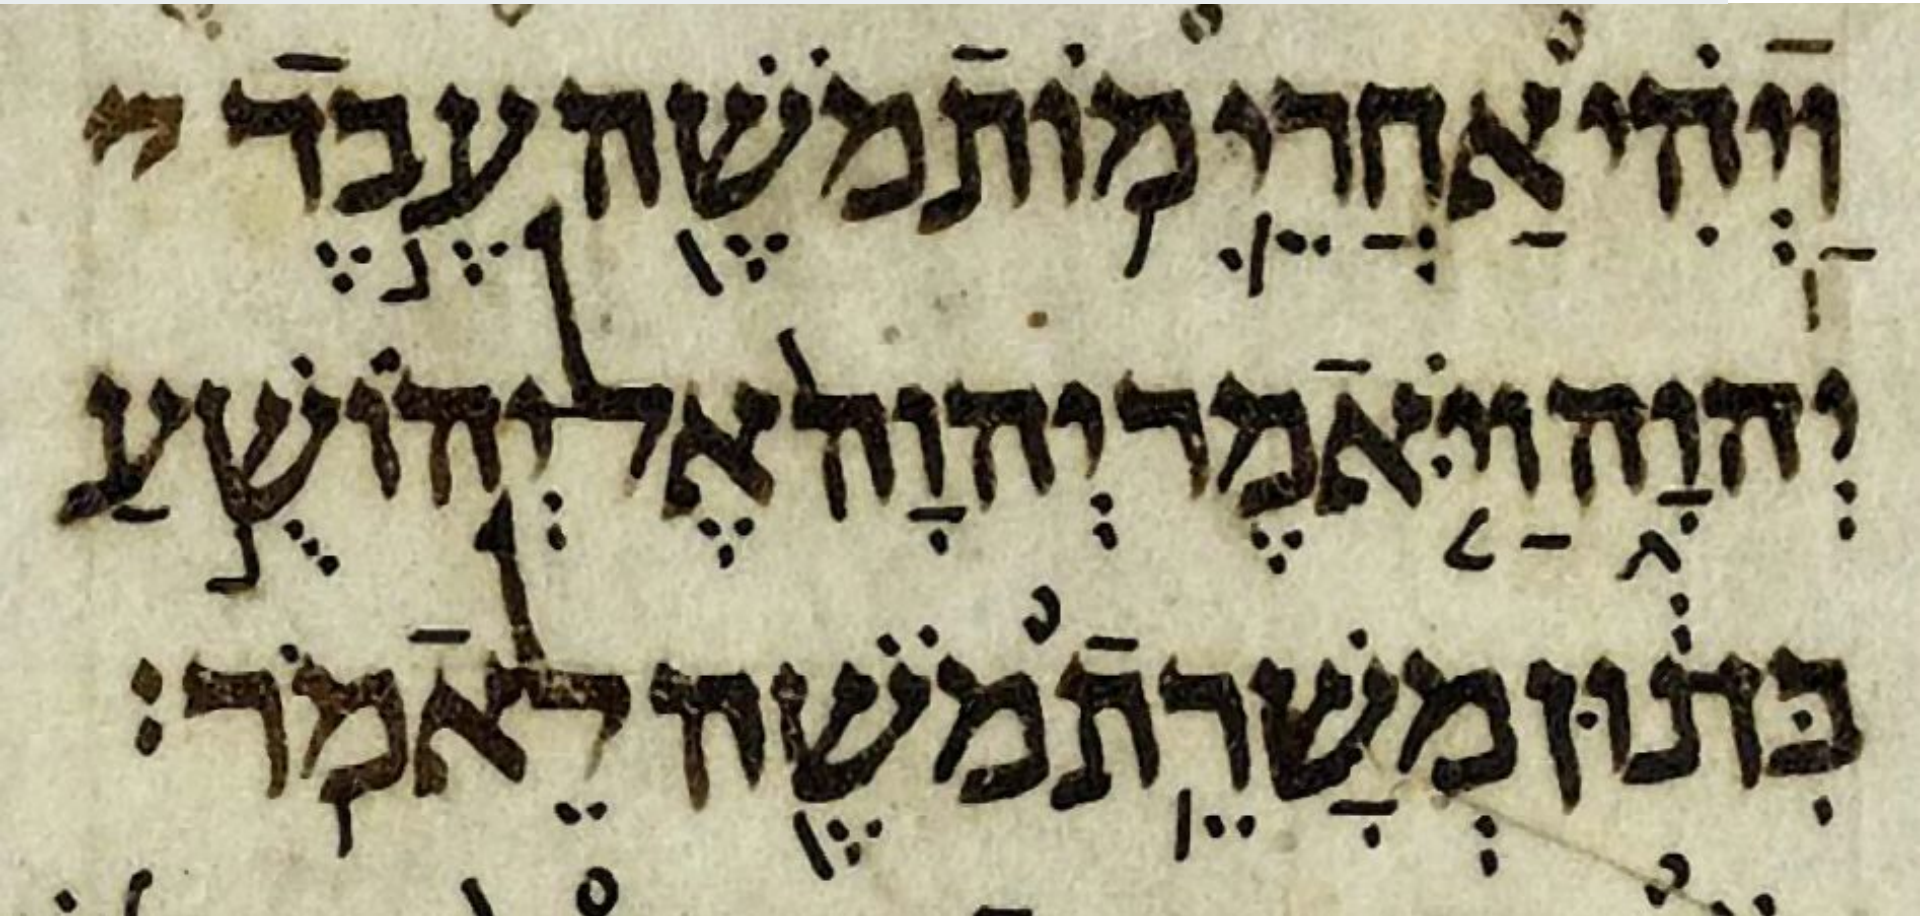 וַֽיְהִ֗י אַחֲרֵ֛י מ֥וֹת מֹשֶׁ֖ה עֶ֣בֶד יי
יְהוָ֑ה וַיֹּ֤אמֶר יְהוָה֙ אֶל יְהוֹשֻׁ֣עַ
בִּן נ֔וּן מְשָׁרֵ֥ת מֹשֶׁ֖ה לֵאמֹֽר׃